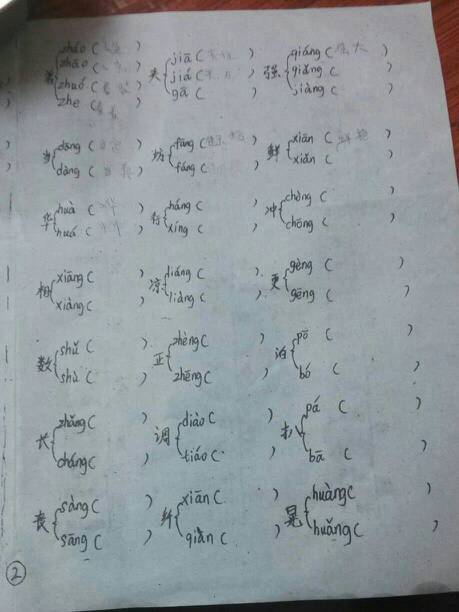 着 zháo ( )
zhāo ( )
zhuó ( )
zhe ( )
夹 jiā ( )
jiá ( )
gā ( )
强 qiáng (强大)
qiǎng ( )
jiàng ( )
当 dāng ( )
dàng ( )
坊 fāng ( )
fáng ( )
鲜 xiān (鲜艳)
xiǎn ( )
华 huà ( )
huá ( )
行 háng ( )
xíng ( )
冲 chòng ( )
chōng ( )
相 xiāng ( )
xiàng ( )
凉 liáng ( )
liàng ( )
更 gèng ( )
gēng ( )
数 shǔ ( )
shù ( )
正 zhèng ( )
zhēng ( )
泊 pō ( )
bó ( )
长 zhǎng ( )
cháng ( )
调 diào ( )
tiáo ( )
扒 pá ( )
bā ( )
丧 sàng ( )
sāng ( )
纤 xiān ( )
qiàn ( )
晃 huàng ( )
huǎng ( )
2